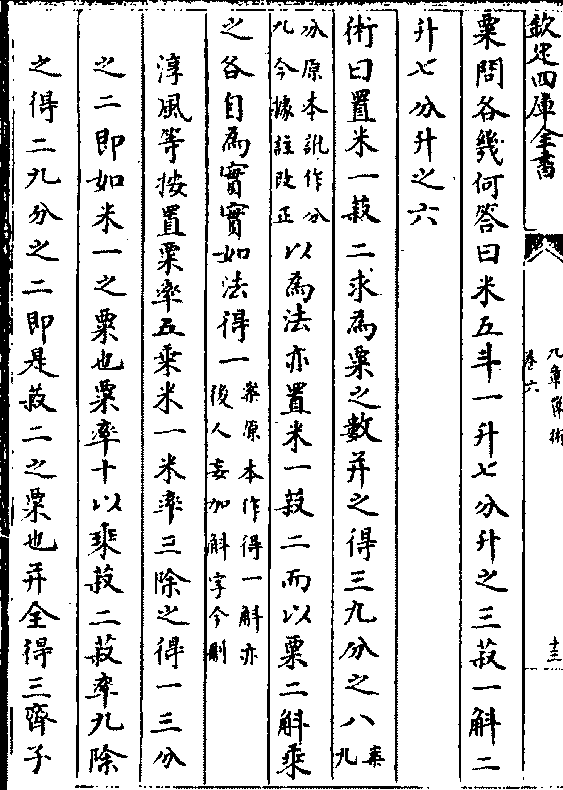 欽定四庫全書
九章算術
卷六
十三
粟問各幾何答曰米五斗一升七分升之三菽一斛二
升七分升之六
術曰置米一菽二求為粟之數并之得三九分之八案九
分原本訛作分九今據註改正以為法亦置米一菽二而以粟二斛乘
之各自為實實如法得一案原本作得一斛亦後人妄加斛字今刪
淳風等按置粟率五乘米一米率三除之得一三分
之二即如米一之粟也粟率十以乘菽二菽率九除
之得二九分之二即是菽二之粟也并全得三齊子